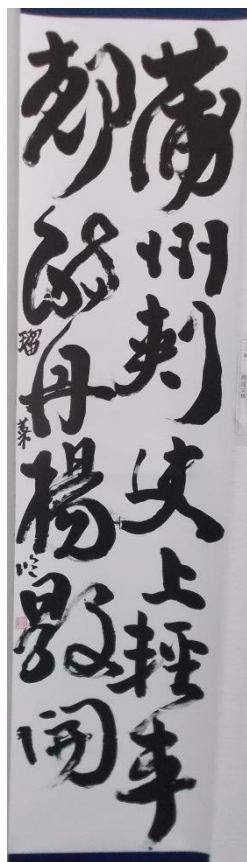 蒲州刺史上輕車
都尉丹楊縣開
瑠菜臨